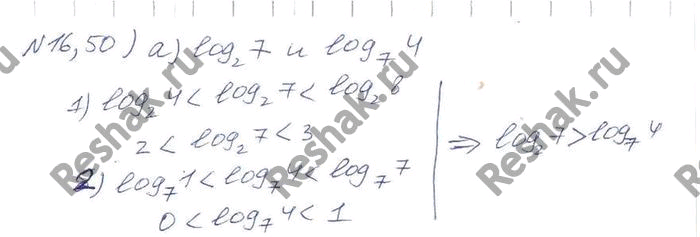 №16,50) а) log₂7 и log₇4
1) log₂4 < log₂7 < log₂8
2 < log₂7 < 3
2) log₇1 < log₇4 < log₇7
0 < log₇4 < 1
⇒ log₂7 > log₇4
Reshak.ru
Reshak.ru
Reshak.ru
Reshak.ru
Reshak.ru